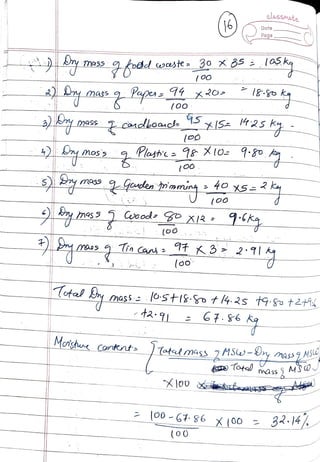 16
classmate
Date
Page
1) Dry mass of food waste = 30/100 × 35 = 105 kg
2) Dry mass of Paper = 94/100 × 20 = = 18.80 kg
3) Dry mass of cardboard = 95/100 × 15 = 14.25 kg.
4) Dry mass of Plastic = 98/100 × 10 = 9.80 kg.
5) Dry mass of Garden trimming = 40/100 × 5 = 2 kg
6) Dry mass of Wood = 80/100 × 12 = 9.6 kg
7) Dry mass of Tin cans = 97/100 × 3 = 2.91 kg
Total Dry mass = 10.5 + 18.80 + 14.25 + 9.80 + 2 + 9.6
+ 2.91 = 67.86 kg
Moisture content = [Total mass of MSW - Dry mass of MSW
Total mass of MSW
× 100
= 100 - 67.86/100 × 100 = 32.14%